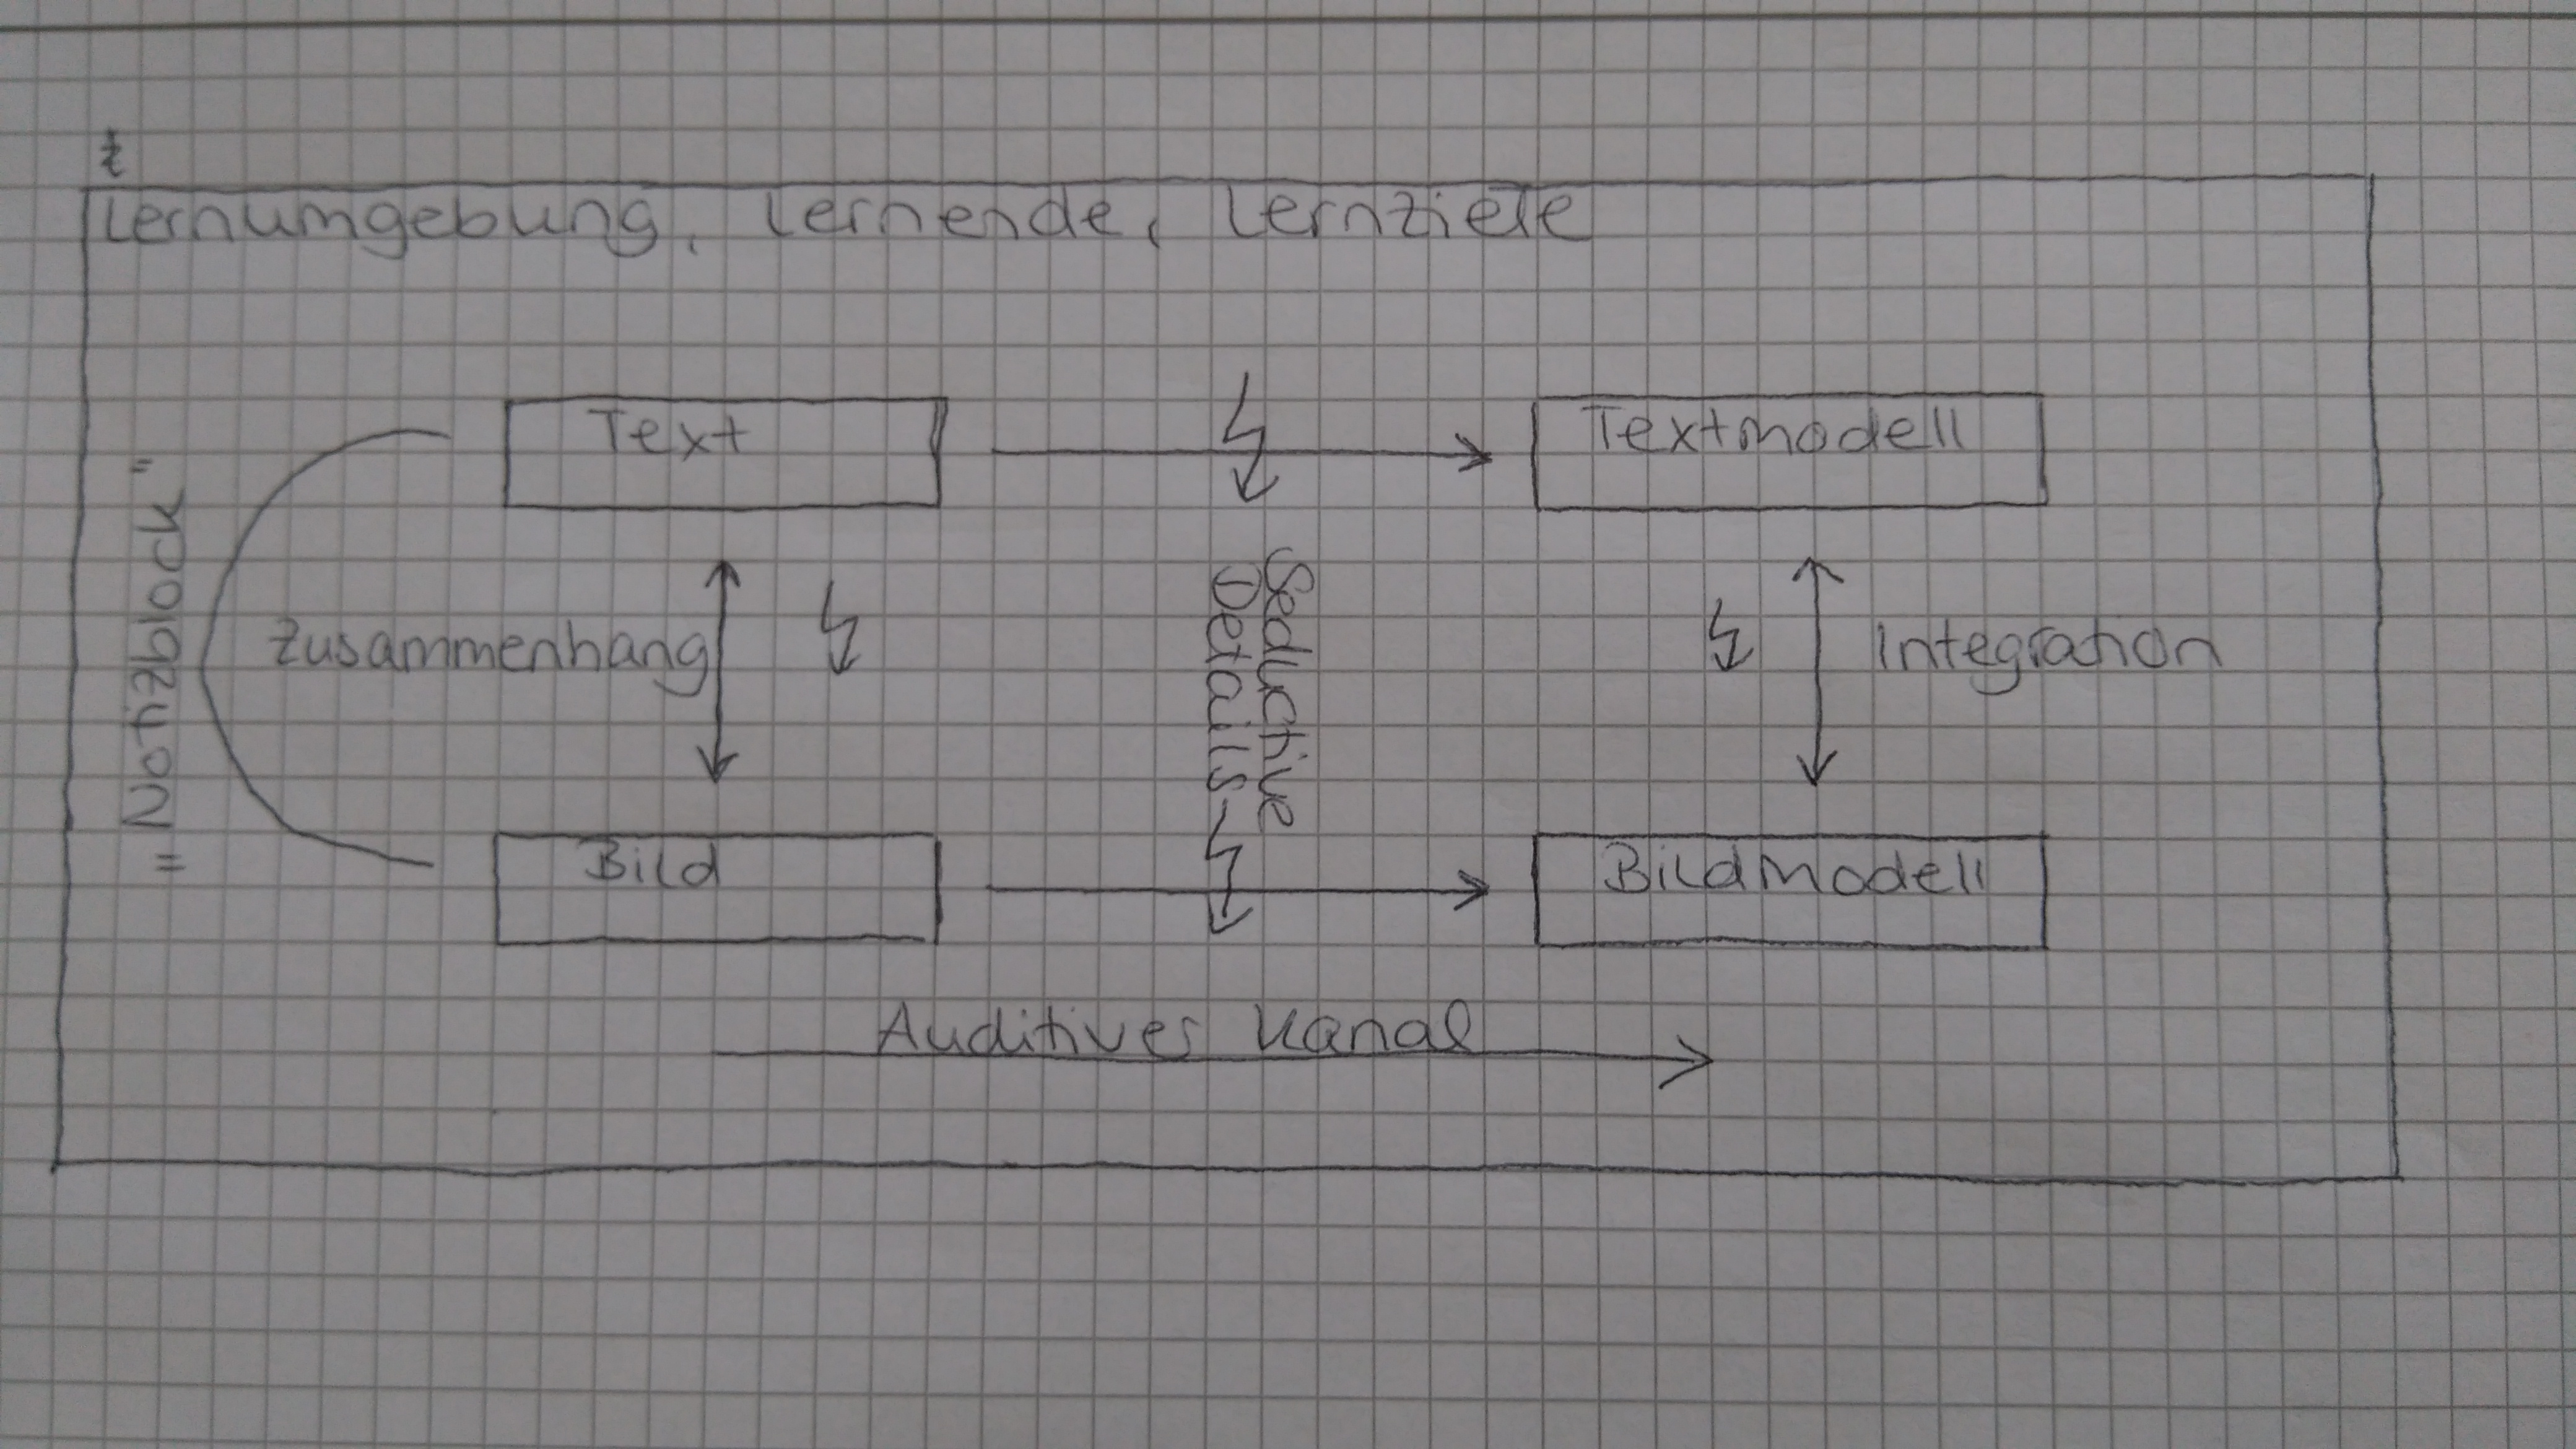 Lernumgebung, Lernende, Lernziele
Text
Textmodell
"Notizblock"
Zusammenhang
Seductive
Details
Integration
Bild
Bildmodell
Auditiver Kanal